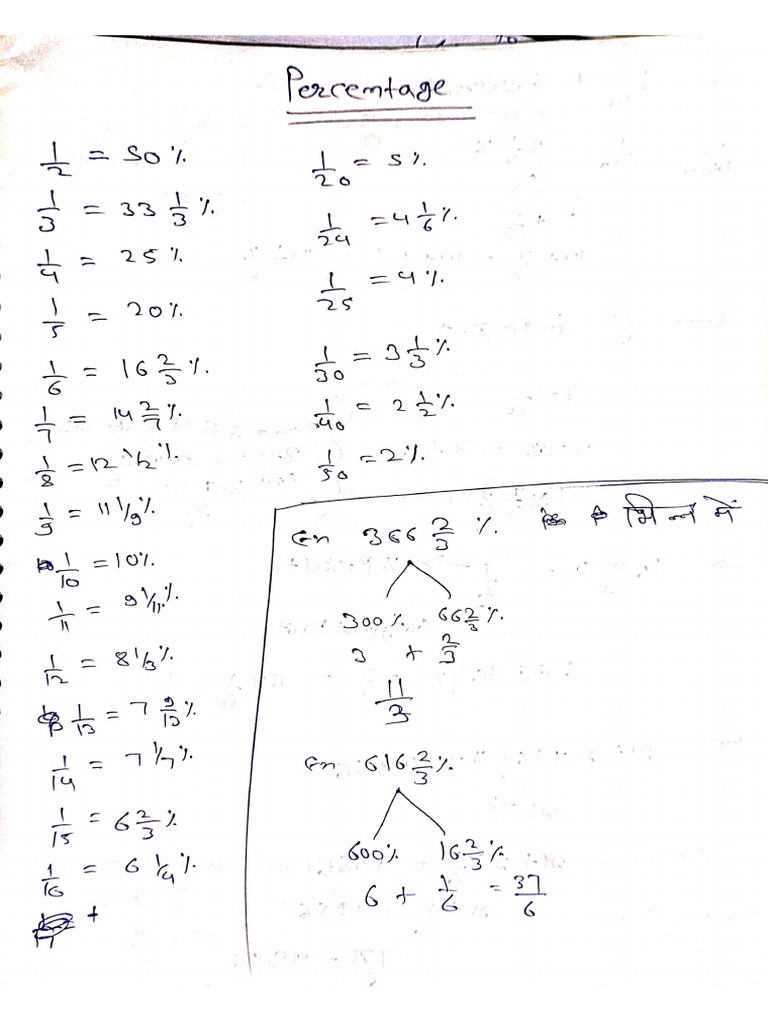 Percentage
1/2 = 50 %
1/3 = 33 1/3 %
1/4 = 25 %
1/5 = 20%
1/6 = 16 2/3 %.
1/7 = 14 2/7 %.
1/8 = 12 1/2 %.
1/9 = 11 1/9 %
1/10 = 10%.
1/11 = 9 1/11 %.
1/12 = 8 1/3 %.
1/13 = 7 9/13 %
1/14 = 7 1/7 %
1/15 = 6 2/3 %
1/16 = 6 1/4 %
1/20 = 5 %.
1/24 = 4 1/6 %.
1/25 = 4 %.
1/30 = 3 1/3 %.
1/40 = 2 1/2 %.
1/50 = 2 %.
En 366 2/3 %. भिन्न में
300 %. 66 2/3 %.
3 + 2/3
11/3
En 616 2/3 %.
600% 16 2/3 %.
6 + 1/6 = 37/6